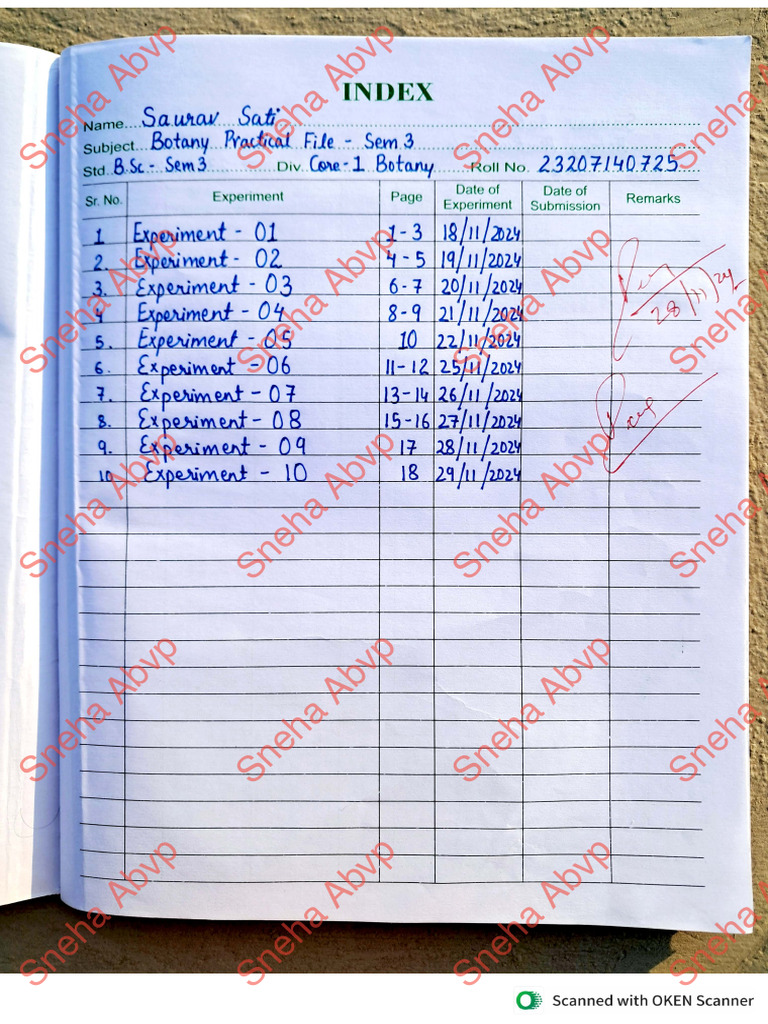 INDEX
Name Saurav Sati
Subject Botany Practical File - Sem 3
Std. B.Sc - Sem 3 Div. Core-1 Botany Roll No. 23207140725
Sr. No. Experiment Page Date of Experiment Date of Submission Remarks
1 Experiment - 01 1-3 18/11/2024
2. Experiment - 02 4-5 19/11/2024
3. Experiment - 03 6-7 20/11/2024
4 Experiment - 04 8-9 21/11/2024
5. Experiment - 05 10 22/11/2024
6. Experiment - 06 11-12 25/11/2024
7. Experiment - 07 13-14 26/11/2024
8. Experiment - 08 15-16 27/11/2024
9. Experiment - 09 17 28/11/2024
10 Experiment - 10 18 29/11/2024
28/11/24
Sneha Abvp
Scanned with OKEN Scanner